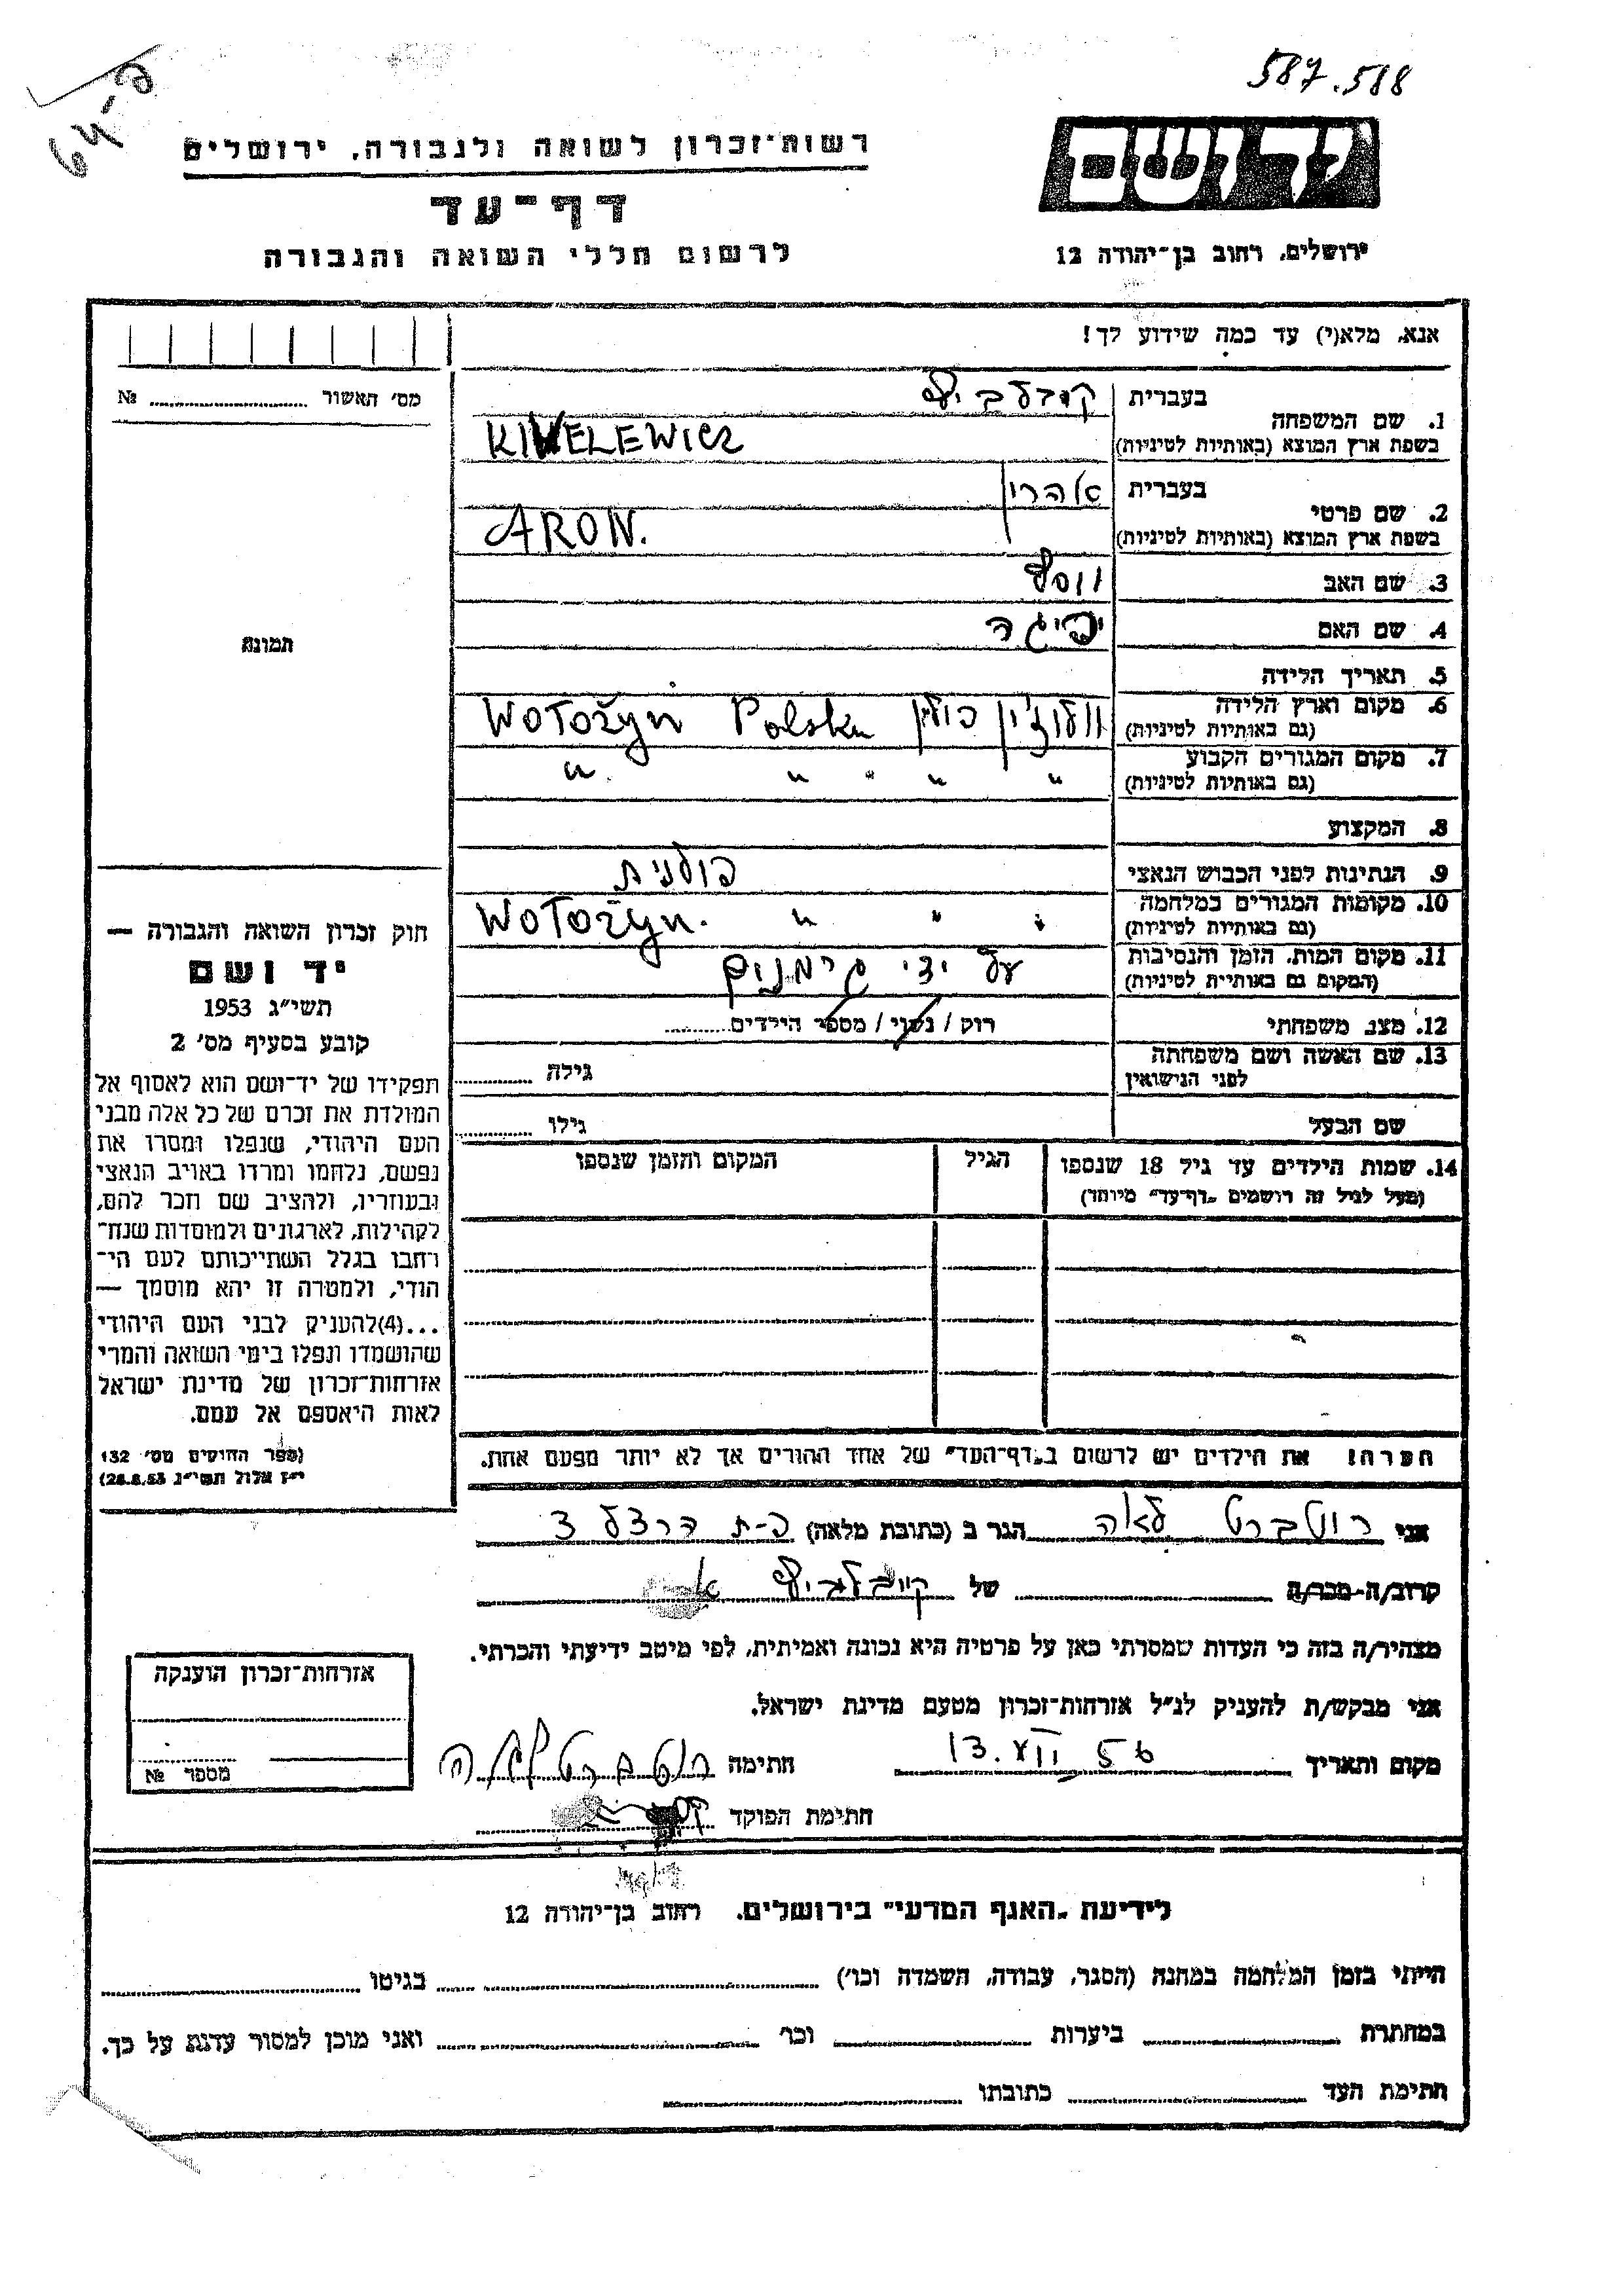 587.588
64-פ
יד ושם
רשות־זכרון לשואה ולגבורה, ירושלים
דף־עד
לרשום חללי השואה והגבורה
ירושלים, רחוב בן־יהודה 12
אנא, מלא(י) עד כמה שידוע לך!
מס׳ האשור ............ №
תמונה
1. שם המשפחה
בעברית
בשפת ארץ המוצא (באותיות לטיניות)
KIWELEWICZ
2. שם פרטי
בעברית אהרון
בשפת ארץ המוצא (באותיות לטיניות)
ARON.
3. שם האב יוסף
4. שם האם
5. תאריך הלידה
6. מקום וארץ הלידה
(גם באותיות לטיניות)
וולוז'ין פולין Polska Wołożyn
7. מקום המגורים הקבוע
(גם באותיות לטיניות)
" " " "
8. המקצוע
9. הנתינות לפני הכבוש הנאצי פולנית
10. מקומות המגורים במלחמה
(גם באותיות לטיניות)
" " " Wołożyn.
11. מקום המות, הזמן והנסיבות
(המקום גם באותיות לטיניות)
על ידי גרמנים
12. מצב משפחתי רוק / נשוי / מספר הילדים............
13. שם האשה ושם משפחתה
לפני הנישואין
גילה ............
שם הבעל גילו ............
14. שמות הילדים עד גיל 18 שנספו
(מעל לגיל זה רושמים „דף־עד״ מיוחד)
הגיל
המקום והזמן שנספו
חוק זכרון השואה והגבורה —
יד ושם
תשי״ג 1953
קובע בסעיף מס׳ 2
תפקידו של יד־ושם הוא לאסוף אל
המולדת את זכרם של כל אלה מבני
העם היהודי, שנפלו ומסרו את
נפשם, נלחמו ומרדו באויב הנאצי
ובעוזריו, ולהציב שם וזכר להם,
לקהילות, לארגונים ולמוסדות שנח־
רבו בגלל השתייכותם לעם הי־
הודי, ולמטרה זו יהא מוסמך —
...(4)להעניק לבני העם היהודי
שהושמדו ונפלו בימי השואה והמרי
אזרחות־זכרון של מדינת ישראל
לאות היאספם אל עמם.
(ספר החוקים מס׳ 132
י״ז אלול תשי״ג 28.8.53)
הערה! את הילדים יש לרשום ב„דף־העד״ של אחד ההורים אך לא יותר מפעם אחת.
אני רוטברט לאה הגר ב (כתובת מלאה) פ-ת הרצל 3
קרוב/ה-מכר/ה של
מצהיר/ה בזה כי העדות שמסרתי כאן על פרטיה היא נכונה ואמיתית, לפי מיטב ידיעתי והכרתי.
אני מבקש/ת להעניק לנ״ל אזרחות־זכרון מטעם מדינת ישראל.
מקום ותאריך חתימה רוטברט לאה
חתימת הפוקד
אזרחות־זכרון הוענקה
מספר №
לידיעת „האגף המדעי״ בירושלים, רחוב בן־יהודה 12
הייתי בזמן המלחמה במחנה (הסגר, עבודה, השמדה וכו׳) בגיטו
במחתרת ביערות וכו׳ ואני מוכן למסור עדות על כך.
חתימת העד כתובתו